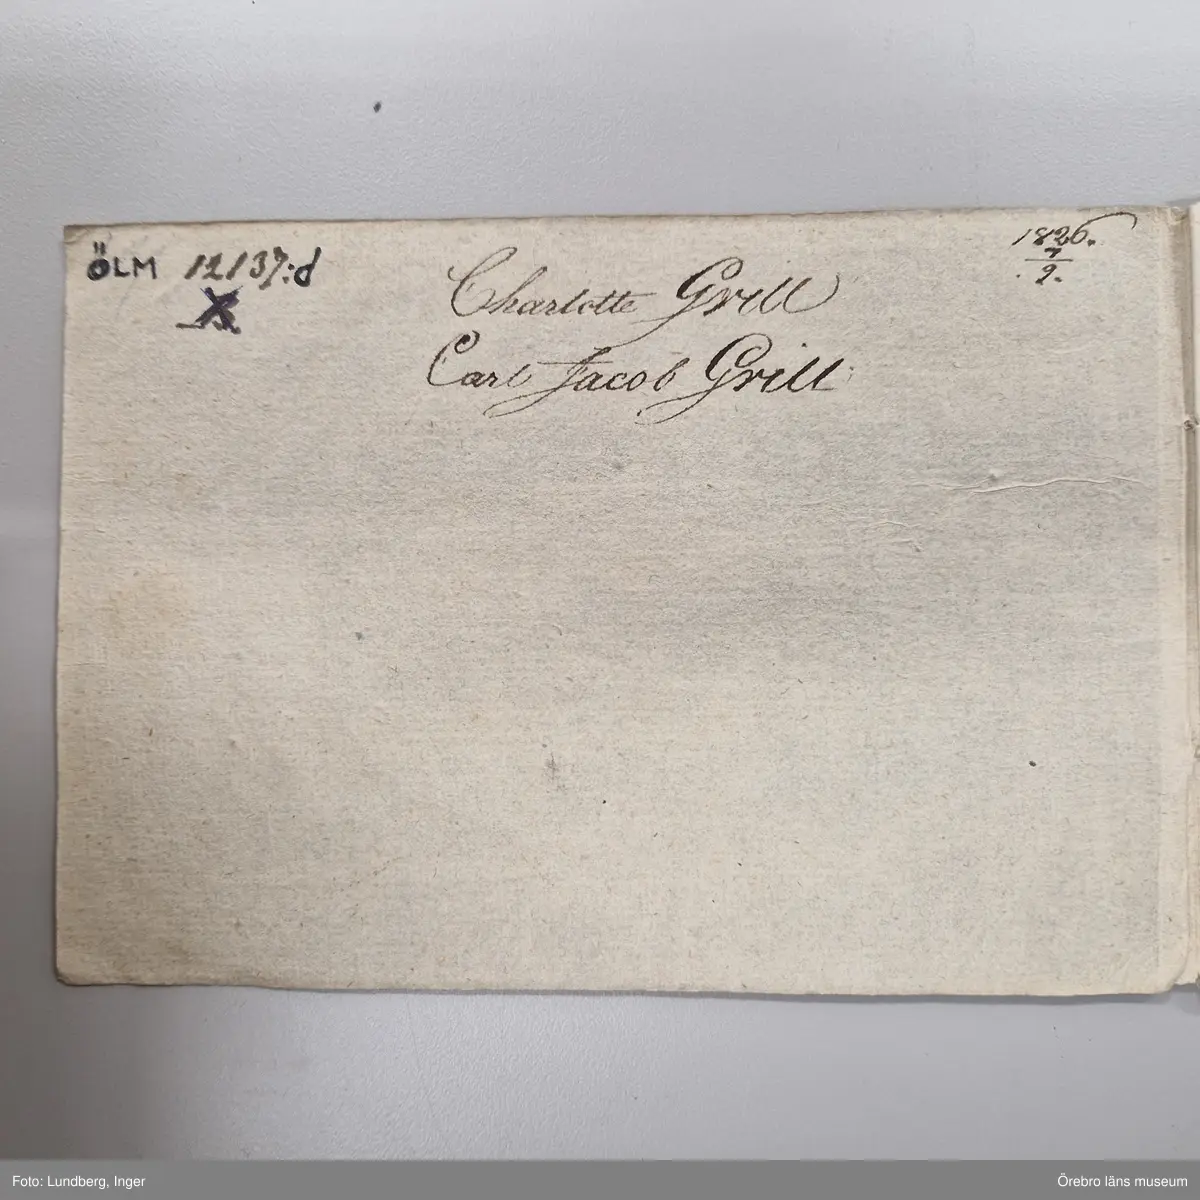 ÖLM 12137:d
Charlotte Grill
Carl Jacob Grill
1826.
7
9.
Foto: Lundberg, Inger
Örebro läns museum